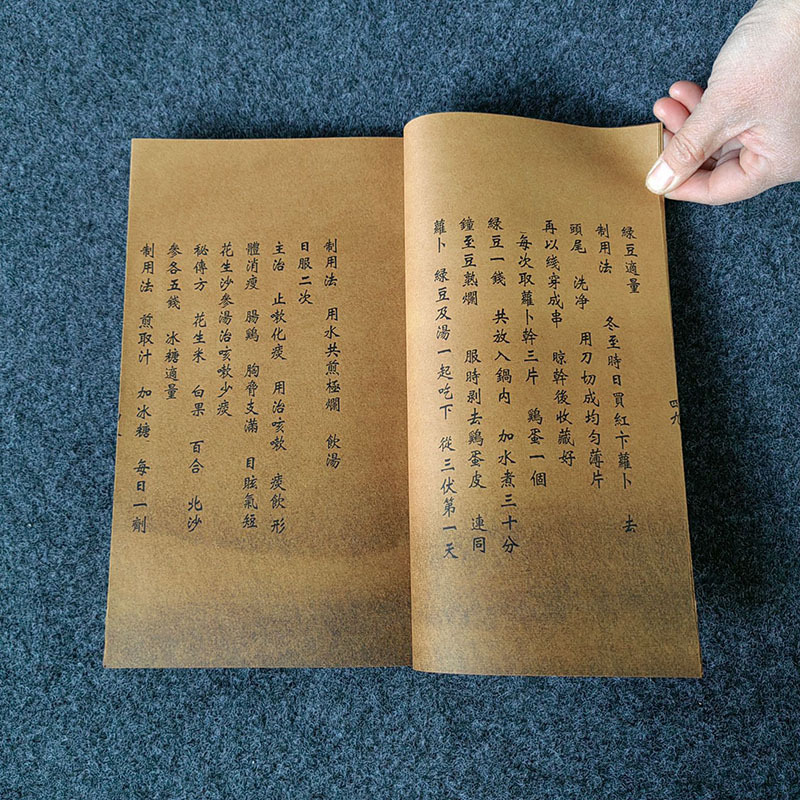 綠豆適量
制用法　冬至時日買紅卞蘿卜　去
頭尾　洗净　用刀切成均勻薄片
再以綫穿成串　晾幹後收藏好
每次取蘿卜幹三片　鷄蛋一個
綠豆一錢　共放入鍋内　加水煮三十分
鐘至豆熟爛　服時剥去鷄蛋皮　連同
蘿卜　綠豆及湯一起吃下　從三伏第一天
四九
制用法　用水共煎極爛　飲湯
日服二次
主治　止嗽化痰　用治咳嗽　痰飲　形
體消瘦　腸鷄　胸脅支滿　目眩氣短
花生沙參湯治咳嗽少痰
秘傳方　花生米　白果　百合　北沙
參各五錢　冰糖適量
制用法　煎取汁　加冰糖　每日一劑